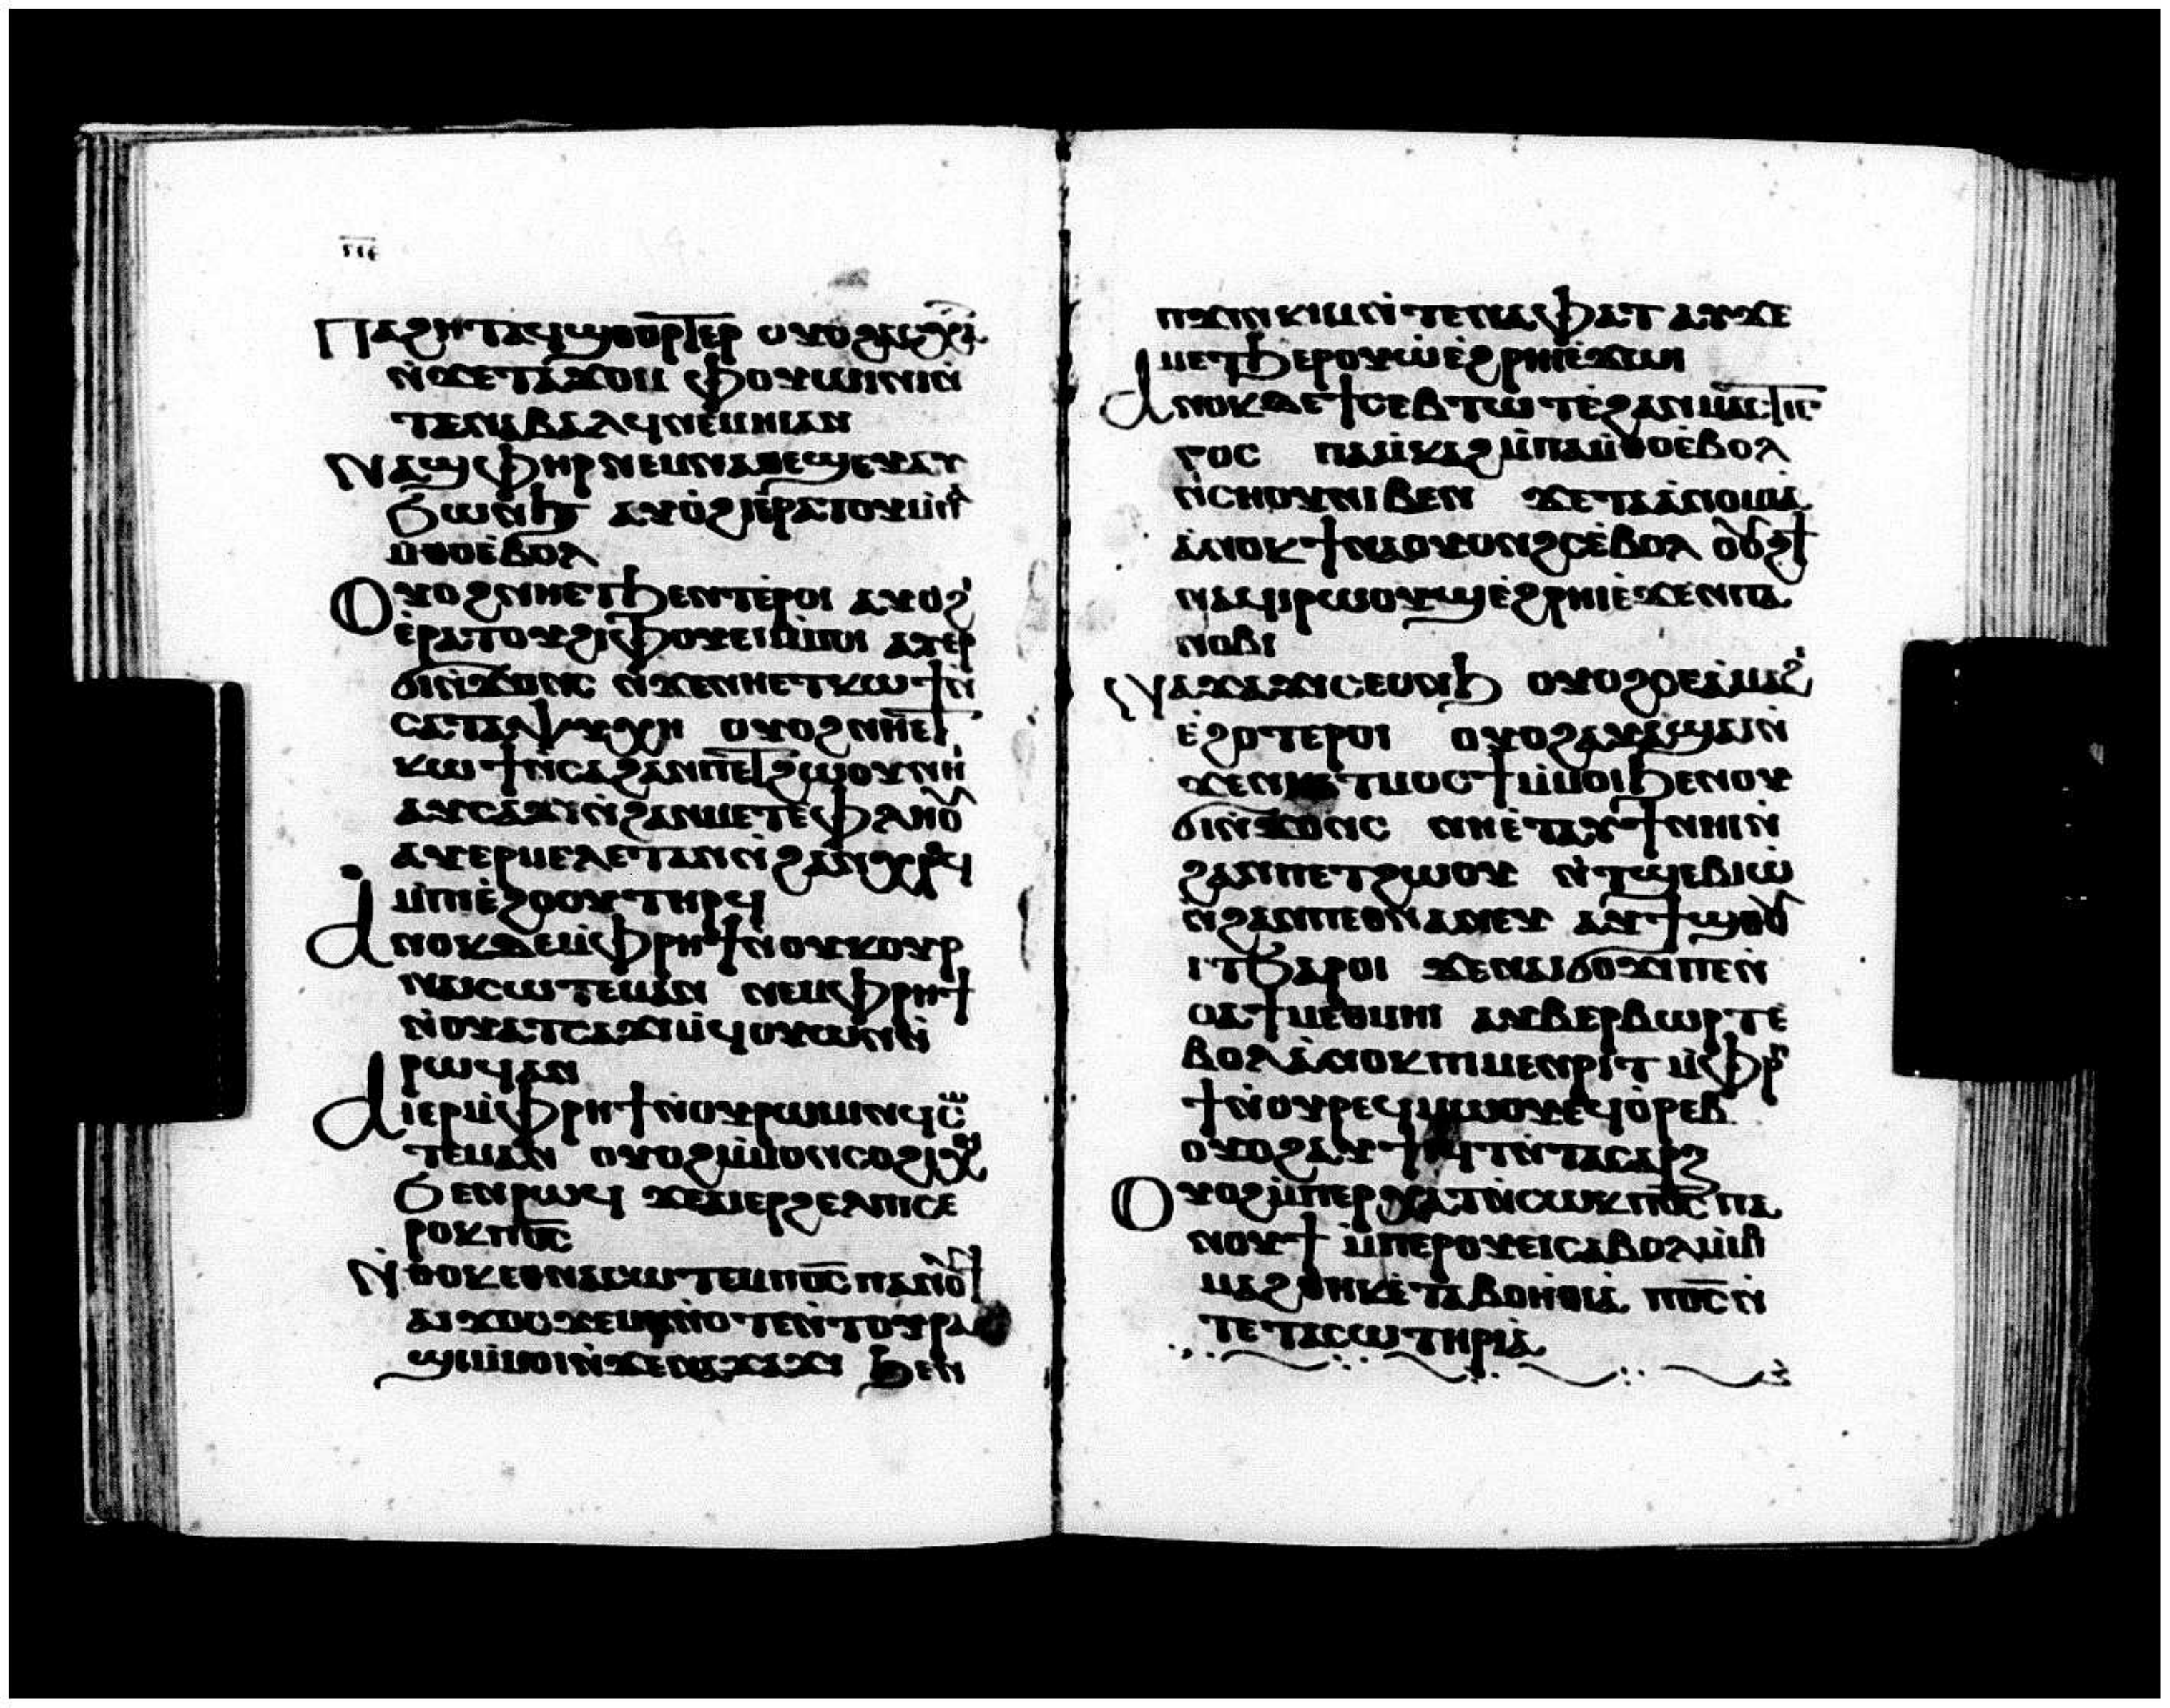 Ⲡⲁϩⲏⲧⲁϥϣⲑⲟⲣⲧⲉⲣ ⲟⲩⲟϩⲁⲥⲭⲁⲧ
ⲛ̀ϫⲉⲧⲁϫⲟⲙ ⲫⲟⲩⲱⲓⲛⲓⲛ̀
ⲧⲉⲛⲁⲃⲁⲗϥⲛⲉⲙⲏⲓⲁⲛ
Ⲛⲁϣⲫⲏⲣⲛⲉⲙⲛⲁⲑⲉϣⲉⲩⲁⲩ
ϧⲱⲛⲧ ⲁⲩⲟ̀ϩⲓⲉ̀ⲣⲁⲧⲟⲩⲙ̀ⲡⲁ
ⲙ̀ⲑⲟⲉ̀ⲃⲟⲗ
Ⲟⲩⲟϩⲛⲏⲉⲧϧⲉⲛⲧⲉ̀ⲣⲟⲓ ⲁⲩⲟϩⲓ
ⲉ̀ⲣⲁⲧⲟⲩϩⲓⲫⲟⲩⲉⲓⲙ̀ⲙⲟⲓ ⲁⲩⲉⲣ
ϭⲓⲛ̀ϫⲟⲛⲥ ⲛ̀ϫⲉⲛⲏⲉⲧⲕⲱϯⲛ̀
ⲥⲁⲧⲁⲯⲩⲭⲏ ⲟⲩⲟϩⲛⲏⲉⲧ
ⲕⲱϯⲛ̀ⲥⲁϩⲁⲛⲡⲉⲧϩⲱⲟⲩⲛⲏⲓ
ⲁⲩⲥⲁϫⲓⲛ̀ϩⲁⲛⲙⲉⲧⲉⲫⲗⲏⲟⲩ
ⲁⲩⲉⲣⲙⲉⲗⲉⲧⲁⲛⲛ̀ϩⲁⲛⲭⲣⲟϥ
ⲙ̀ⲡⲓⲉ̀ϩⲟⲟⲩⲧⲏⲣϥ
Ⲁⲛⲟⲕⲇⲉⲙ̀ⲫⲣⲏϯⲛ̀ⲟⲩⲕⲟⲩⲣ
ⲛⲁⲓⲥⲱⲧⲉⲙⲁⲛ ⲛⲉⲙⲫⲣⲏϯ
ⲛ̀ⲟⲩⲁⲧⲥⲁϫⲓⲙ̀ϥⲟⲩⲱⲛⲛ̀
ⲣⲱϥⲁⲛ
Ⲁⲓⲉⲣⲙ̀ⲫⲣⲏϯⲛ̀ⲟⲩⲣⲱⲙⲓⲛϥⲥⲱ
ⲧⲉⲙⲁⲛ ⲟⲩⲟϩⲙ̀ⲙⲟⲛⲥⲟϩⲓⲭⲏ
ϧⲉⲛⲣⲱϥ ϫⲉⲁⲓⲉⲣϩⲉⲗⲡⲓⲥⲉ
ⲣⲟⲕⲡⲟ̅ⲥ̅
Ⲛ̀ⲑⲟⲕⲉⲑⲛⲁⲥⲱⲧⲉⲙⲡⲟ̅ⲥ̅ⲡⲁⲛⲟⲩϯ
ⲁⲓϫⲟⲥϫⲉⲙⲏⲡⲟⲧⲉⲛ̀ⲧⲟⲩⲣⲁ
ϣⲓⲙ̀ⲙⲟⲓⲛ̀ϫⲉⲛⲁϫⲁϫⲓ ϧⲉⲛ
ⲡϫⲓⲛⲕⲓⲙⲛ̀ⲧⲉⲛⲁϭⲁⲗⲁⲩϫ ⲁⲩϫⲉ
ⲙⲉⲧϧⲉⲣⲟⲩⲱⲉ̀ϩⲣⲏⲓⲉ̀ϫⲱⲓ
Ⲁⲛⲟⲕⲇⲉϯⲥⲉⲃⲧⲱⲧⲉ̀ϩⲁⲛⲙⲁⲥⲧⲓⲅ
ⲅⲟⲥ ⲡⲁⲙ̀ⲕⲁϩⲙ̀ⲡⲁⲙ̀ⲑⲟⲉ̀ⲃⲟⲗ
ⲛ̀ⲥⲏⲟⲩⲛⲓⲃⲉⲛ ϫⲉⲧⲁⲁ̀ⲛⲟⲙⲓⲁ
ⲁ̀ⲛⲟⲕϯⲛⲁⲟⲩⲟⲛϩⲥⲉ̀ⲃⲟⲗ ⲟⲩⲟϩϯ
ⲛⲁϥⲓⲣⲱⲟⲩϣⲉ̀ϩⲣⲏⲓⲉ̀ϫⲉⲛⲡⲁ
ⲛⲟⲃⲓ
Ⲛⲁϫⲁϫⲓⲥⲉⲟⲛϧ ⲟⲩⲟϩⲥⲉⲁ̀ⲙⲁϩⲓ
ⲉ̀ϩⲟⲧⲉⲣⲟⲓ ⲟⲩⲟϩⲁⲩⲁ̀ϣⲁⲓⲛ̀
ϫⲉⲛⲏⲉⲧⲙⲟⲥϯⲙ̀ⲙⲟⲓϧⲉⲛⲟⲩ
ϭⲓⲛ̀ϫⲟⲛⲥ ⲛⲏⲉ̀ⲧⲁⲩϯⲛⲏⲓⲛ̀
ϩⲁⲛⲡⲉⲧϩⲱⲟⲩ ⲛ̀ⲧϣⲉⲃⲓⲱ
ⲛ̀ϩⲁⲛⲡⲉⲑⲛⲁⲛⲉⲩ ⲁⲩϯϣⲟⲩ
ⲓⲧϧⲁⲣⲟⲓ ϫⲉⲛⲁⲓϭⲟϫⲓⲡⲉⲛ̀
ⲥⲁϯⲙⲉⲑⲙⲏⲓ ⲁⲩⲃⲉⲣⲃⲱⲣⲧⲉ̀
ⲃⲟⲗⲁ̀ⲛⲟⲕⲡⲓⲙⲉⲛⲣⲓⲧ ⲙ̀ⲫⲣⲏ
ϯⲛ̀ⲟⲩⲣⲉϥⲙⲱⲟⲩⲧⲉϥⲟⲣⲉⲃ
ⲟⲩⲟϩⲁⲩϯⲓϥⲧⲛ̀ⲧⲁⲥⲁⲣⲝ
Ⲟⲩⲟϩⲙ̀ⲡⲉⲣⲭⲁⲧⲛ̀ⲥⲱⲕⲡⲟ̅ⲥ̅ⲡⲁ
ⲛⲟⲩϯ ⲙ̀ⲡⲉⲣⲟⲩⲉⲓⲥⲁⲃⲟⲗⲙ̀ⲙⲟⲓ
ⲙⲁϩⲑⲏⲕⲉ̀ⲧⲁⲃⲟⲏ̀ⲑⲓⲁ ⲡⲟ̅ⲥ̅ⲛ̀
ⲧⲉⲧⲁⲥⲱⲧⲏⲣⲓⲁ